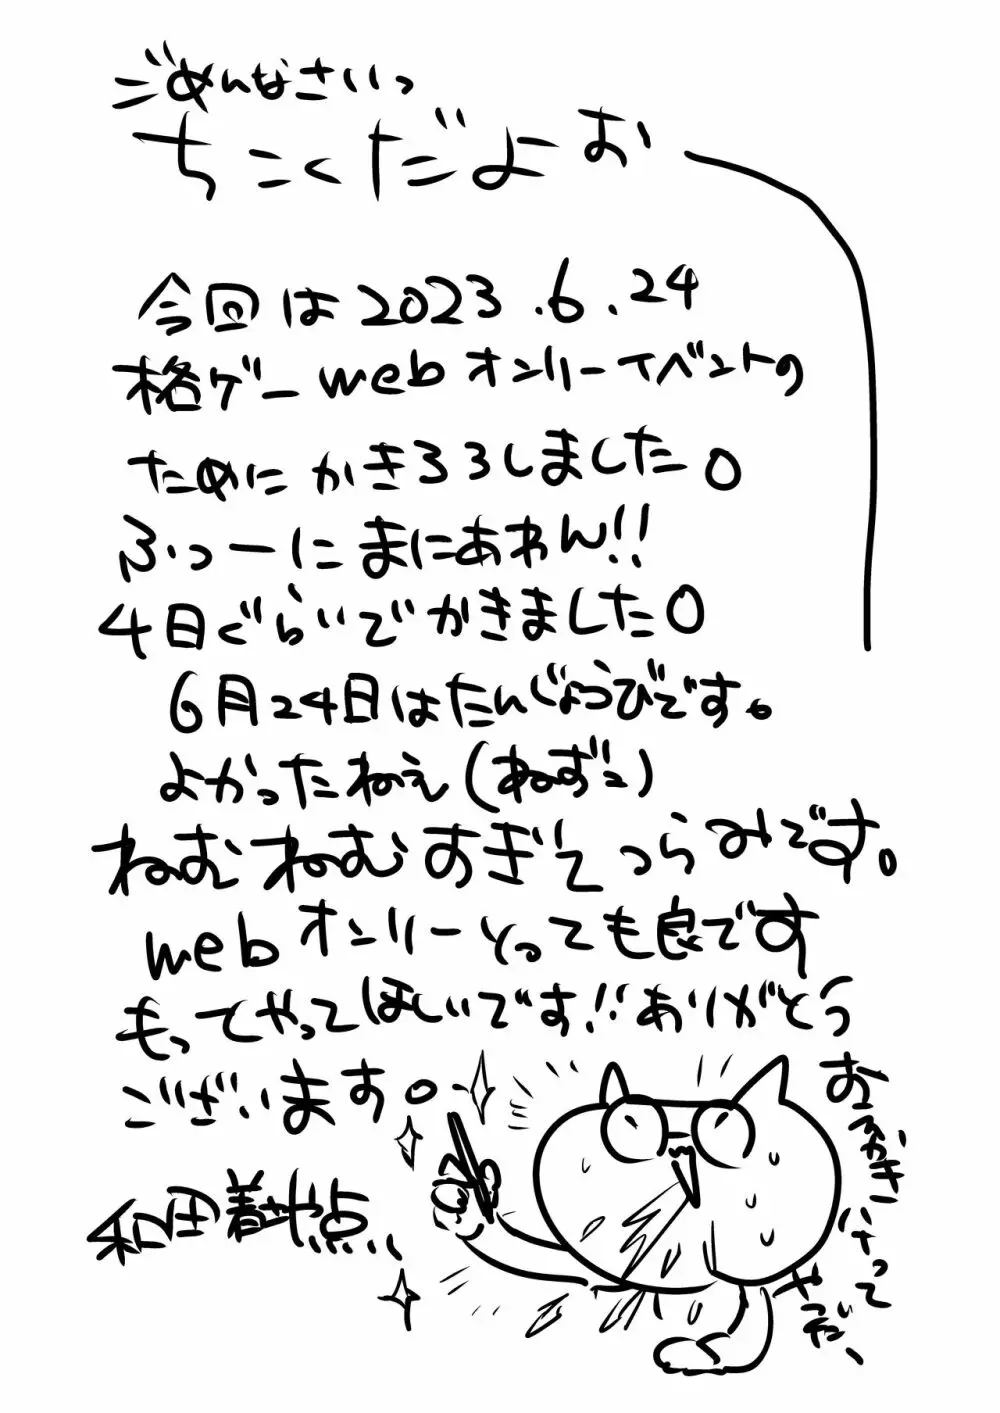 ごめんなさいっ
ちこくだよお
今回は2023.6.24
格ゲーwebオンリーイベントの
ためにかきろろしました。
ふっーにまにあわん!!
4日ぐらいでかきました。
6月24日はたんじょうびです。
よかったねぇ(ねずこ)
ねむねむすぎてつらみです。
webオンリーとっても良です
もってやってほしいです!!ありがとう
ございます。
和田着地点
おえかき
はって
やだ、